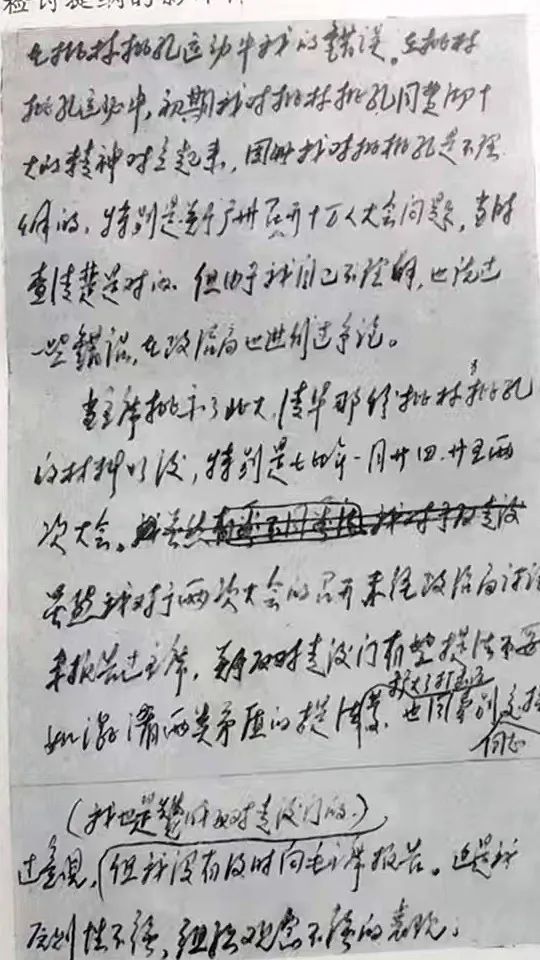 在批林批孔运动中我的错误。在批林
批孔运动中,初期我对批林批孔同贯彻十
大的精神对立起来,因此我对批林批孔是不理
解的。特别是关于广州召开十万人大会问题,当时
查清楚是对的。但由于我自己不理解,也说过
一些错话,在政治局也进行过争论。
当主席批示了北大、清华那份批林批孔
的材料以后,特别是七四年一月廿四、廿五两
次大会。
虽然我对于两次大会的召开未经政治局讨论
未报告过主席,
如混淆两类矛盾的提法等,扩大了打击面
也同个别
同志
(我也是赞成反对走后门的。)
过意见,但我没有及时向毛主席报告。这是我
原则性不强,组织观念不强的表现。